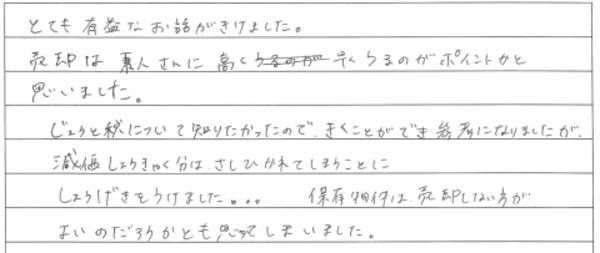 とても有益なお話がきけました。
売却は素人さんに高く早くうるのがポイントかと
思いました。
じょうと税について知りたかったので、きくことができ参考になりましたが、
減価しょうきゃく分は、さしひかれてしまうことに
しょうげきをうけました。。。 保存物件は、売却しない方が
よいのだろうかとも思ってしまいました。